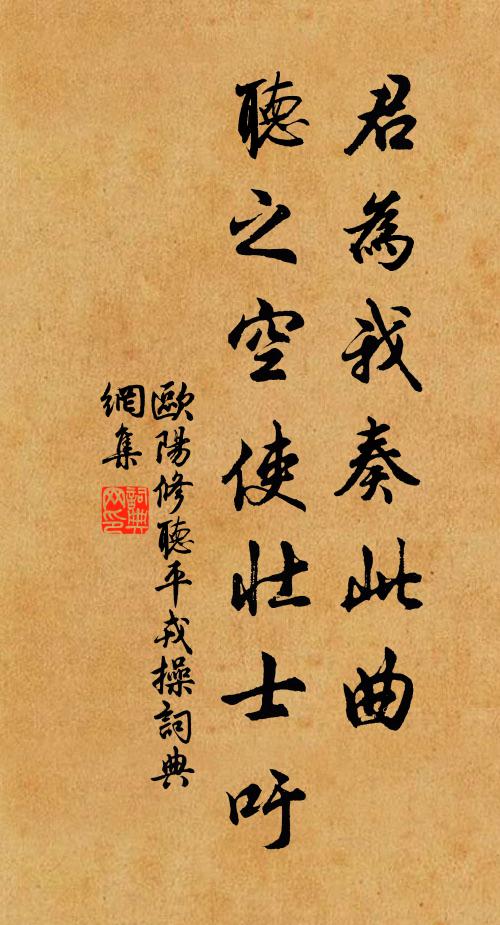 君為我奏此曲
聽之空使壯士吁
歐陽修聽平戎操詞典
網集
詞典網印